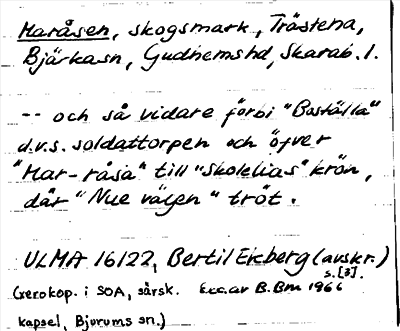 Maråsen, skogsmark, Trästena,
Bjärka sn, Gudhems hd, Skarab. l.
-- och så vidare förbi "Boställa"
d.v.s. soldattorpen och öfver
"Mar-råsa" till "skolelias" krön,
där "Nue vägen" tröt.
ULMA 16122, Bertil Ekberg (avskr.)
s. [3].
(xerokop. i SOA, särsk. Exc. av B. Bm 1966
kapsel, Bjurums sn.)